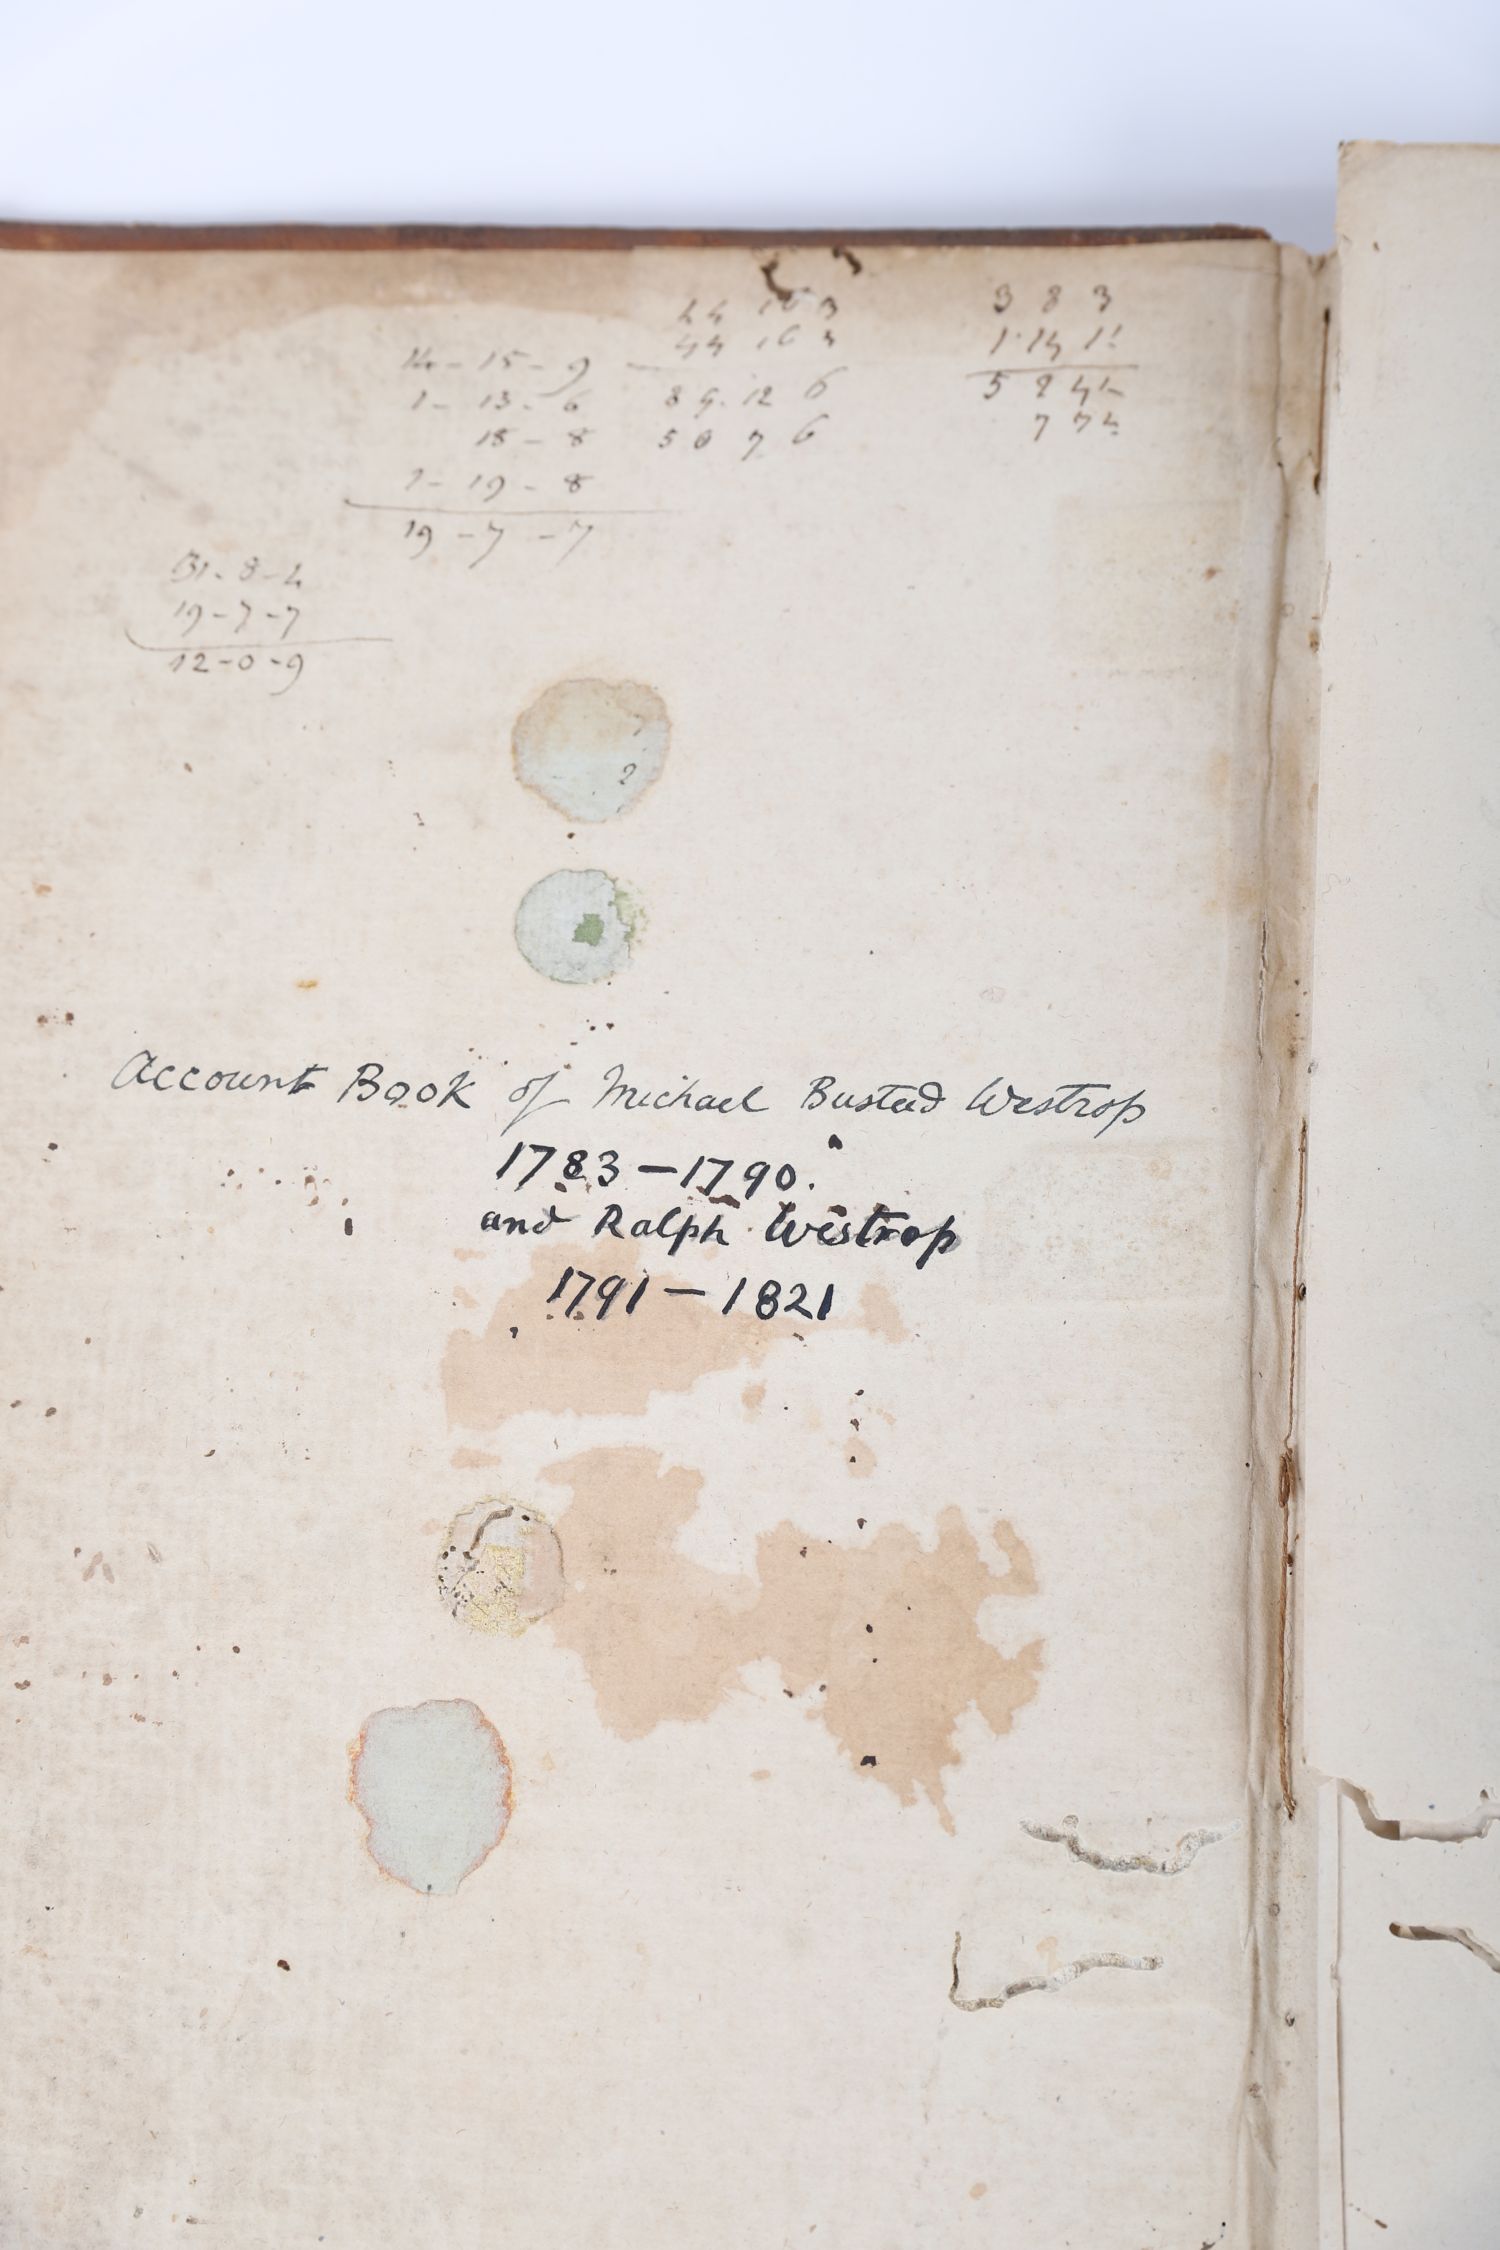 14 - 15 - 9
1 - 13 - 6
18 - 8
1 - 19 - 8
19 - 7 - 7
44 16 3
89. 12 6
50 7 6
3 8 3
5 2
31 - 8 - 4
19 - 7 - 7
12 - 0 - 9
2
Account Book of Michael Busteed Westrop
1783 - 1790.
and Ralph Westrop
1791 - 1821